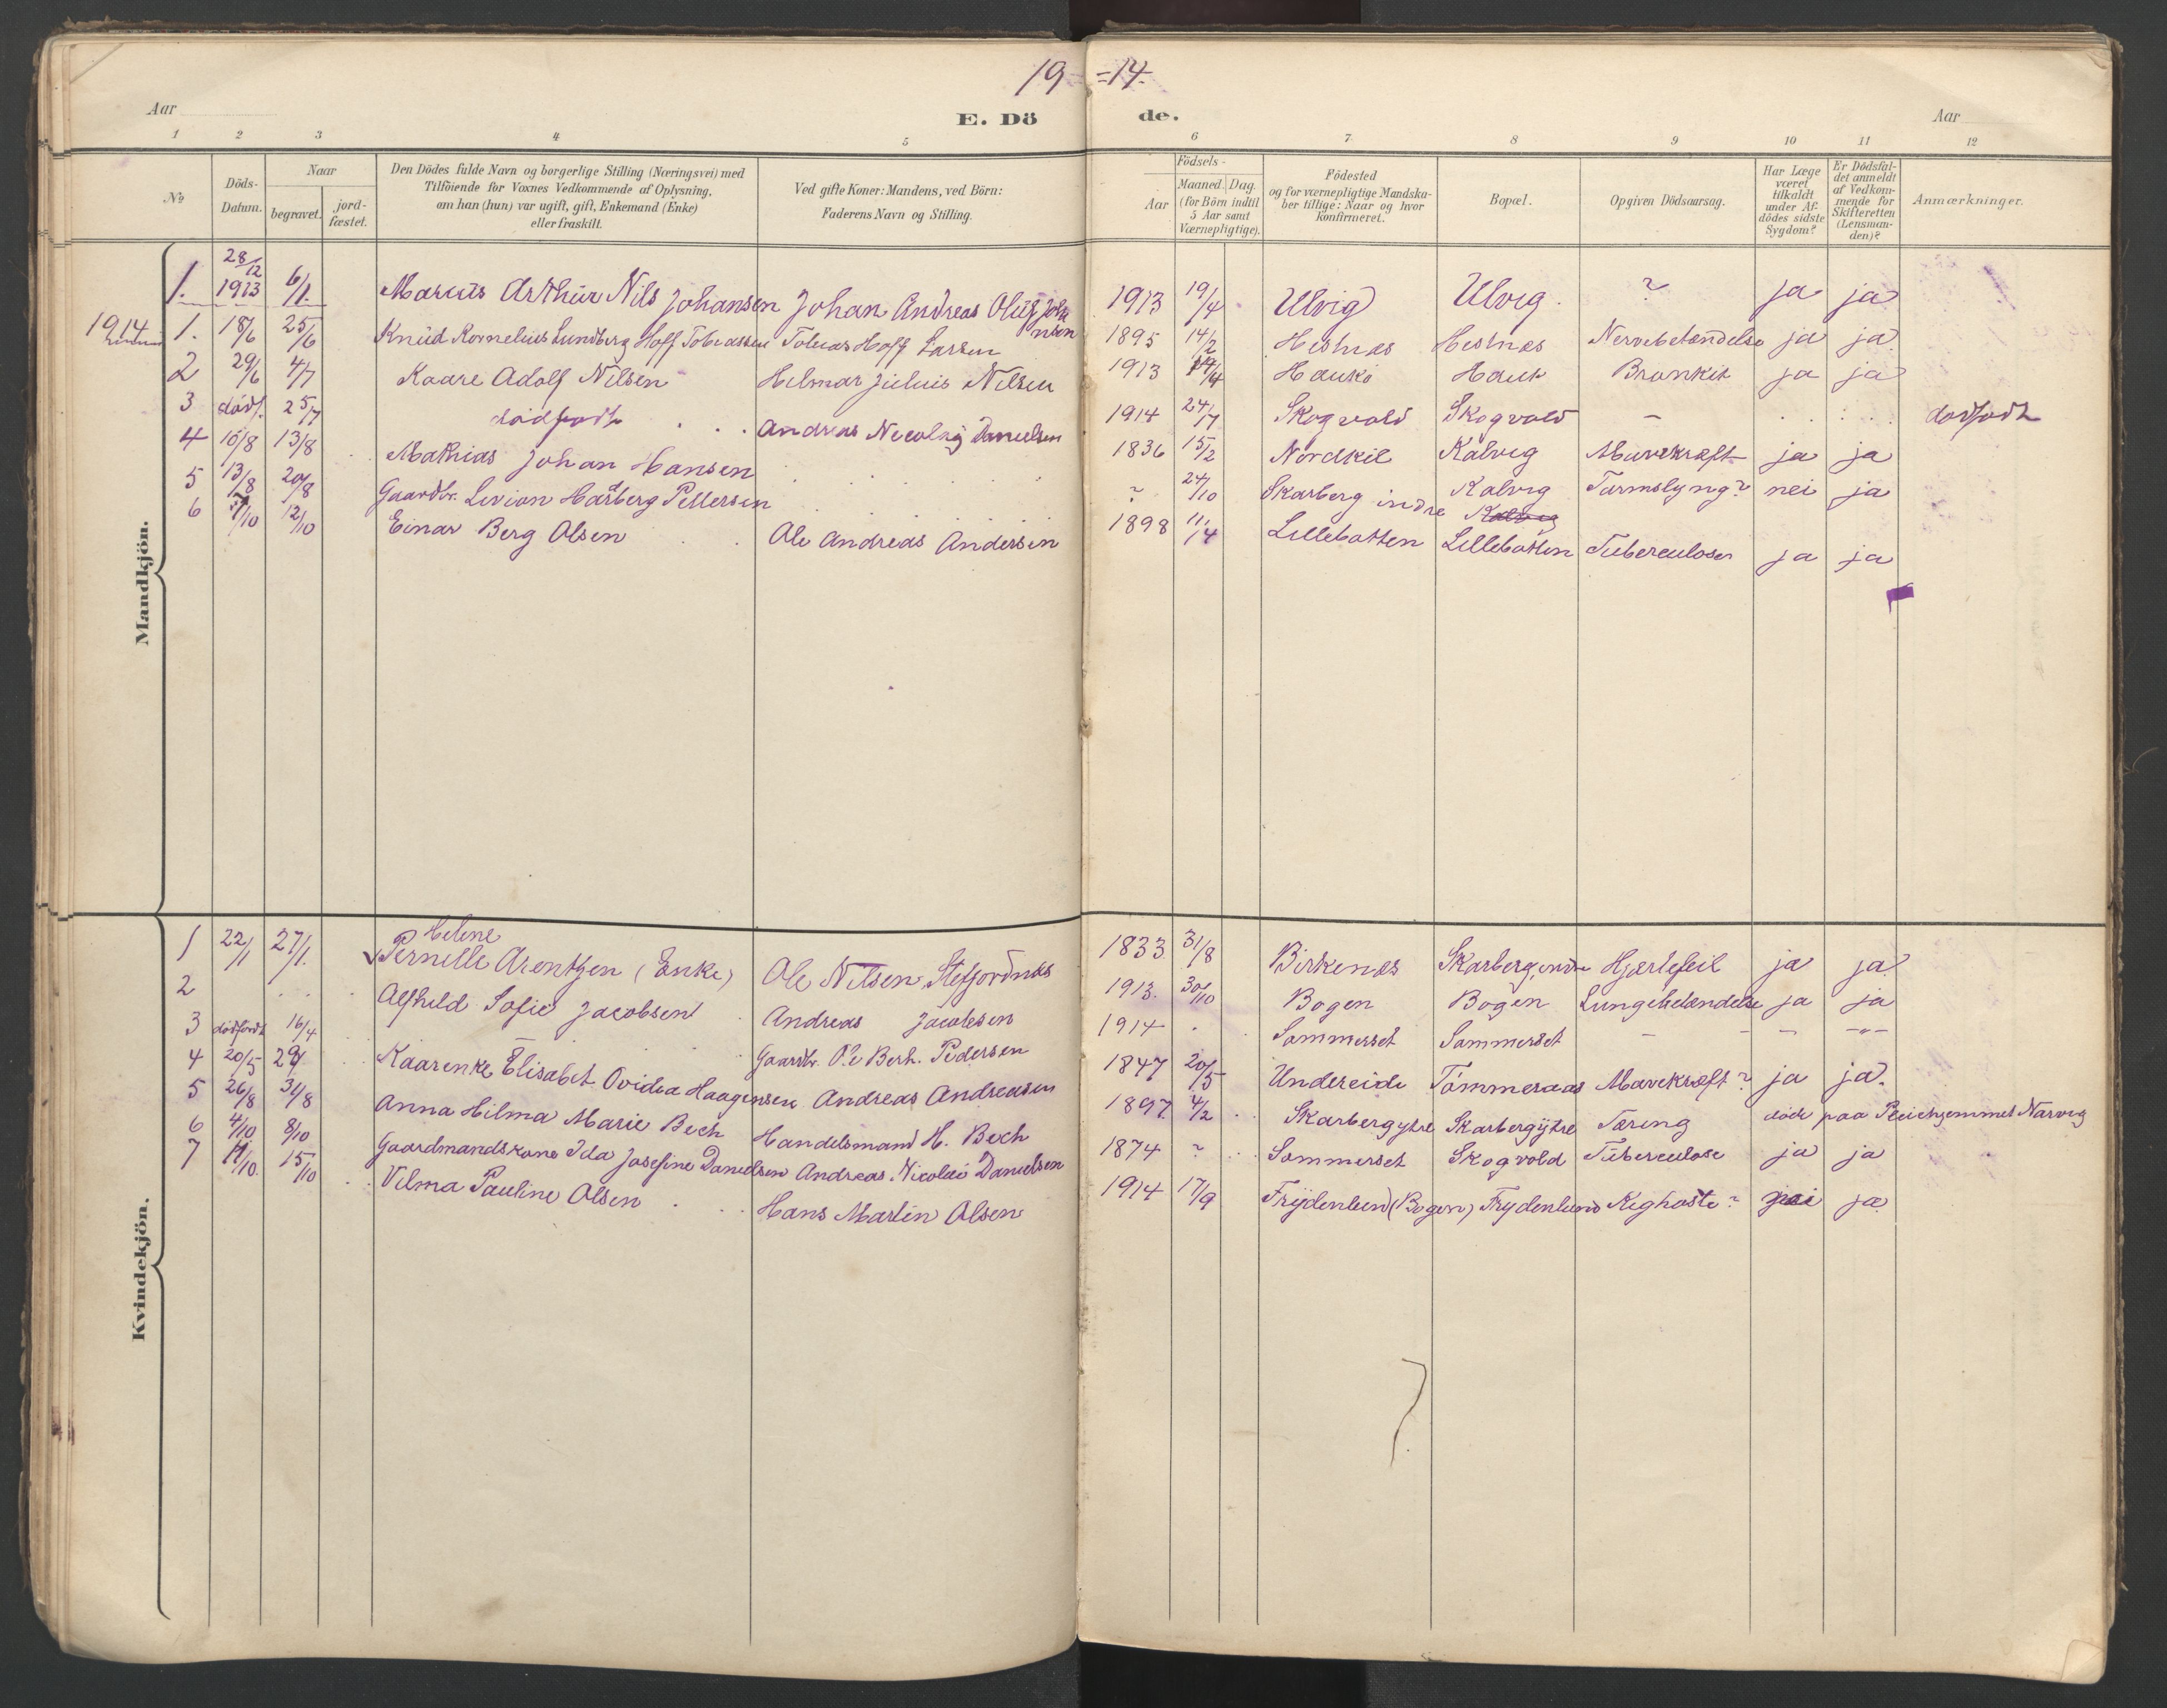 19 = 14.
Aar
E. Dö de.
Aar
1 2 3 4 5 6 7. 8 9 10 11 12
No
Döds-Datum.
Naar
begravet.
jord-fæstet.
Den Dödes fulde Navn og borgerlige Stilling (Næringsvei) med
Tilföiende for Voxnes Vedkommende af Oplysning,
om han (hun) var ugift, gift, Enkemand (Enke)
eller fraskilt.
Ved gifte Koner: Mandens, ved Börn:
Faderens Navn og Stilling.
Födsels-
Aar
Maaned. Dag.
(for Börn indtil
5 Aar samt
Værnepligtige).
Födested
og for værnepligtige Mandska-
ber tillige: Naar og hvor
Konfirmeret.
Bopæl.
Opgiven Dödsaarsag.
Har Læge
været
tilkaldt
under Af-
dödes sidste
Sygdom?
Er Dödsfal-
det anmeldt
af Vedkom-
mende for
Skifteretten
(Lensman-
den)?
Anmærkninger.
Mandkjön.
1. 28/12 1913 6/1. Markus Arthur Nils Johansen Johan Andreas Oluf Johansen 1913 19/4 Ulvig Ulvig. ? ja ja
1914 1. 18/6 25/6 Knud Kornelius Lundberg Hoff Tobiassen Tobias Hoff Larsen 1895 14/2 Hestnes Hestnes Nervebetændelse ja ja
2 29/6 4/7 Kaare Adolf Nilsen Hilmar Julius Nilsen 1913 Haukö Hauk Bronkit ja ja
3 dödf. 25/7 dödfödt Andreas Nicolaij Danielsen 1914 24/7 Skogvold Skogvold – dödfödt
4 10/8 13/8 Mathias Johan Hansen 1836 15/2 Nordkil Kalvig Mavekræft ja ja
5 13/8 20/8 Gaardbr. Levion Harberg Pettersen ? 24/10 Skarberg indre Kalvig Tarmslyng? nei ja
6 7/10 12/10 Einar Berg Olsen Ole Andreas Andersen 1898 11/4 Lillebotten Kalvig Lillebotten Tuberculoser ja ja
Kvindekjön.
1 22/1 27/1. Helene Pernille Arentzen (Enke) Ole Nilsen Stefjordnes 1833. 31/8 Birkenes Skarberg indre Hjertefeil ja ja
2 Alfhild Sofie Jacobsen Andreas Jacobsen 1913. 30/10 Bogen Bogen Lungebetændelse ja ja
3 dödfödt 16/4 Gaardbr. Ole Berh. Pedersen 1914 Sommerset Sommerset – – – –"–
4 20/5 Kaarenke Elisabet Ovidia Haagensen Andreas Andreasen 1847 20/5 Undereide Tömmeraas Mavekræft? ja ja.
5 26/8 31/8 Anna Hilma Marie Bech Handelsmand H. Bech 1897 4/2 Skarberg ytre Skarberg ytre Tæring död paa Pleiehjemmet Narvig
6 4/10 8/10 Gaardmandskone Ida Josefine Danielsen Andreas Nicolai Danielsen 1874 ? Sommerset Skogvold Tuberculose ja ja
7 11/10. 15/10 Vilma Pauline Olsen Hans Martin Olsen 1914 17/9 Frydenlund (Bogen) Frydenlund Kighoste? nei ja